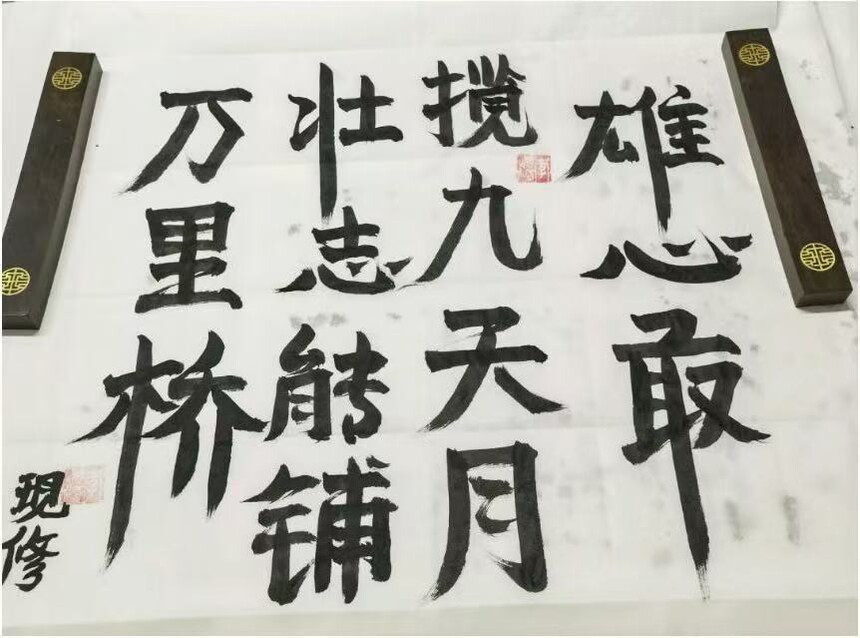 雄心敢
揽九天月
壮志能铺
万里桥
现修